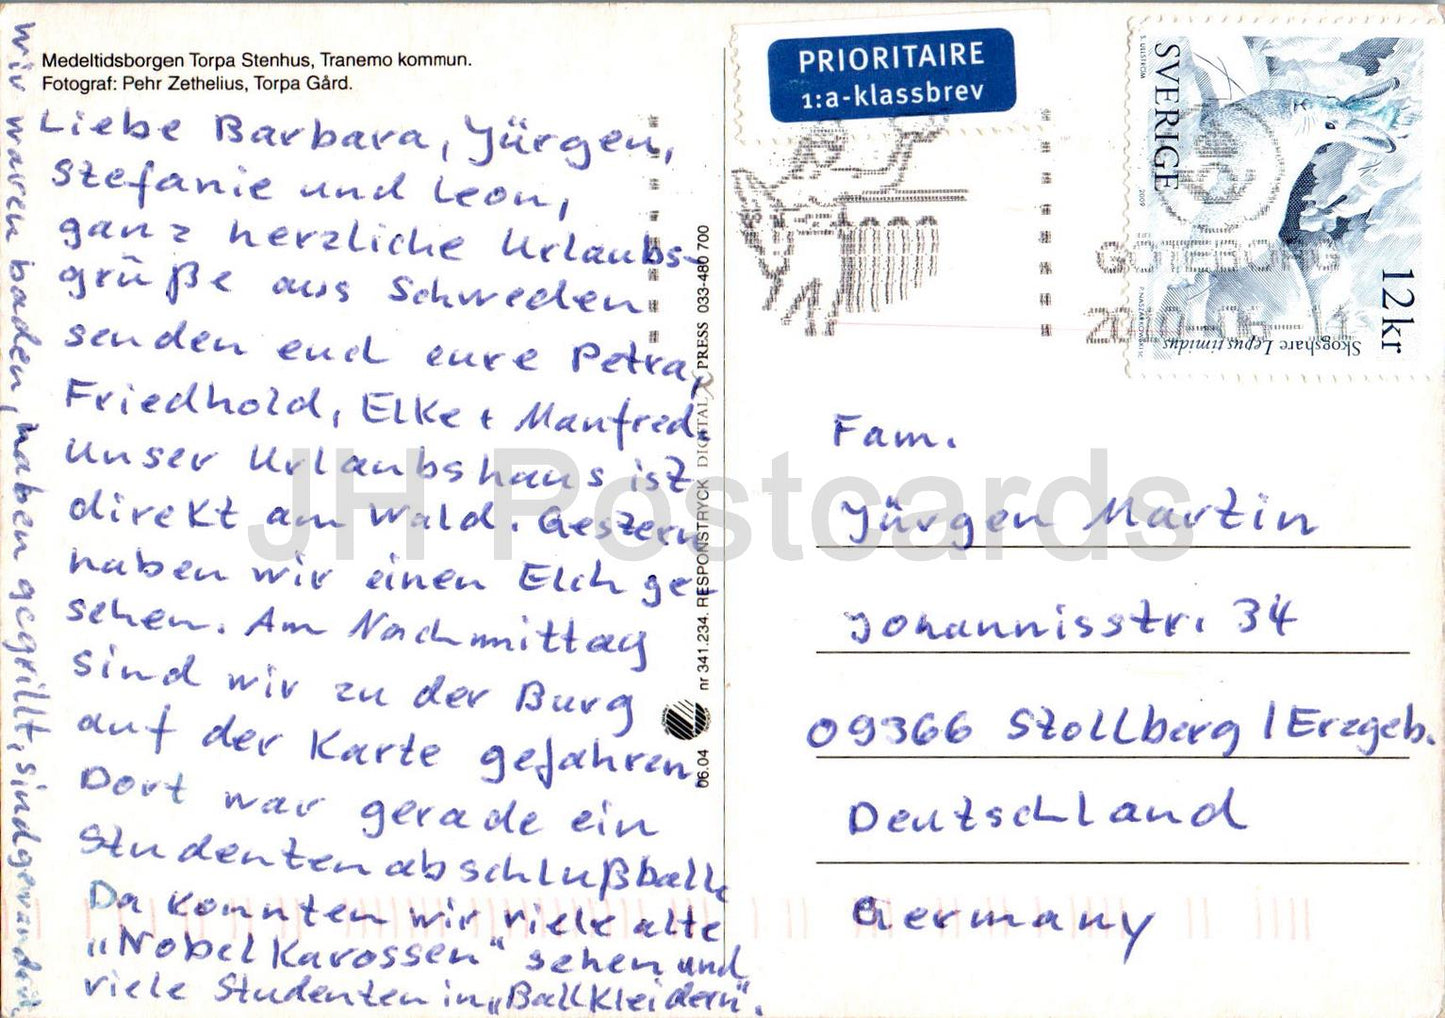 Medeltidsborgen Torpa Stenhus, Tranemo kommun.
Fotograf: Pehr Zethelius, Torpa Gård.
Liebe Barbara, Jürgen,
Stefanie und Leon,
ganz herzliche Urlaubs-
grüße aus Schweden
senden euch eure Petra,
Friedhold, Elke + Manfred.
Unser Urlaubshaus ist
direkt am Wald. Gestern
haben wir einen Elch ge-
sehen. Am Nachmittag
sind wir zu der Burg
auf der Karte gefahren.
Dort war gerade ein
Studentenabschlußball.
Da konnten wir viele alte
„Nobelkarossen" sehen und
viele Studenten in „Ballkleidern".
wir waren baden, haben gegrillt, sind gewandert.
06.04 nr 341.234. RESPONSTRYCK DIGITAL PRESS 033-480 700
PRIORITAIRE
1:a-klassbrev
SVERIGE
S. ULLSTRÖM
2009
12 kr
Skogshare Lepus timidus
GÖTEBORG
Fam.
Jürgen Martin
Johannisstr. 34
09366 Stollberg / Erzgeb.
Deutschland
Germany
JH Postcards